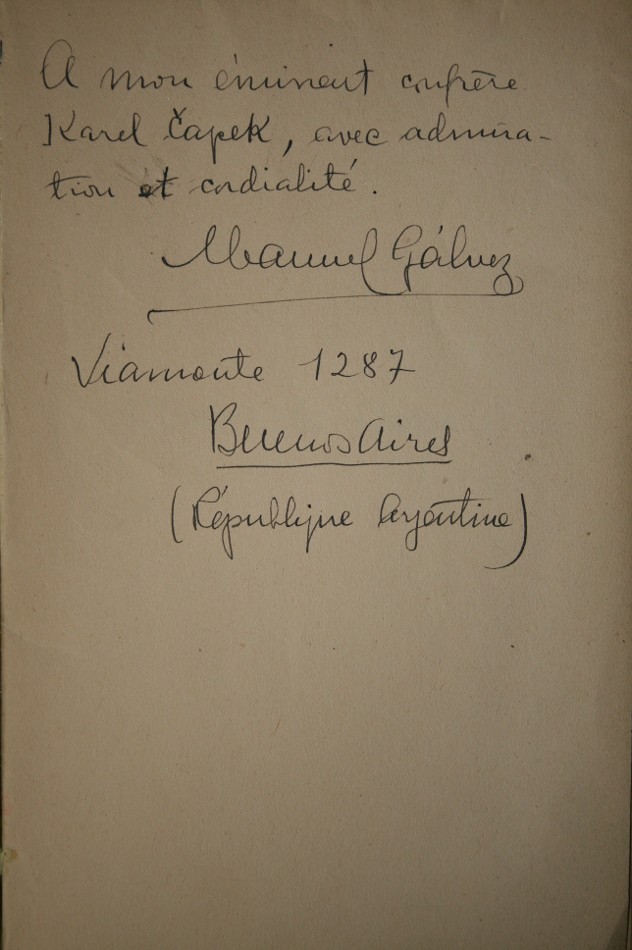 A mon éminent confrère
Karel Čapek, avec admira-
tion et cordialité.
Manuel Gálvez
Viamonte 1287
Buenos Aires
(République Argentine)